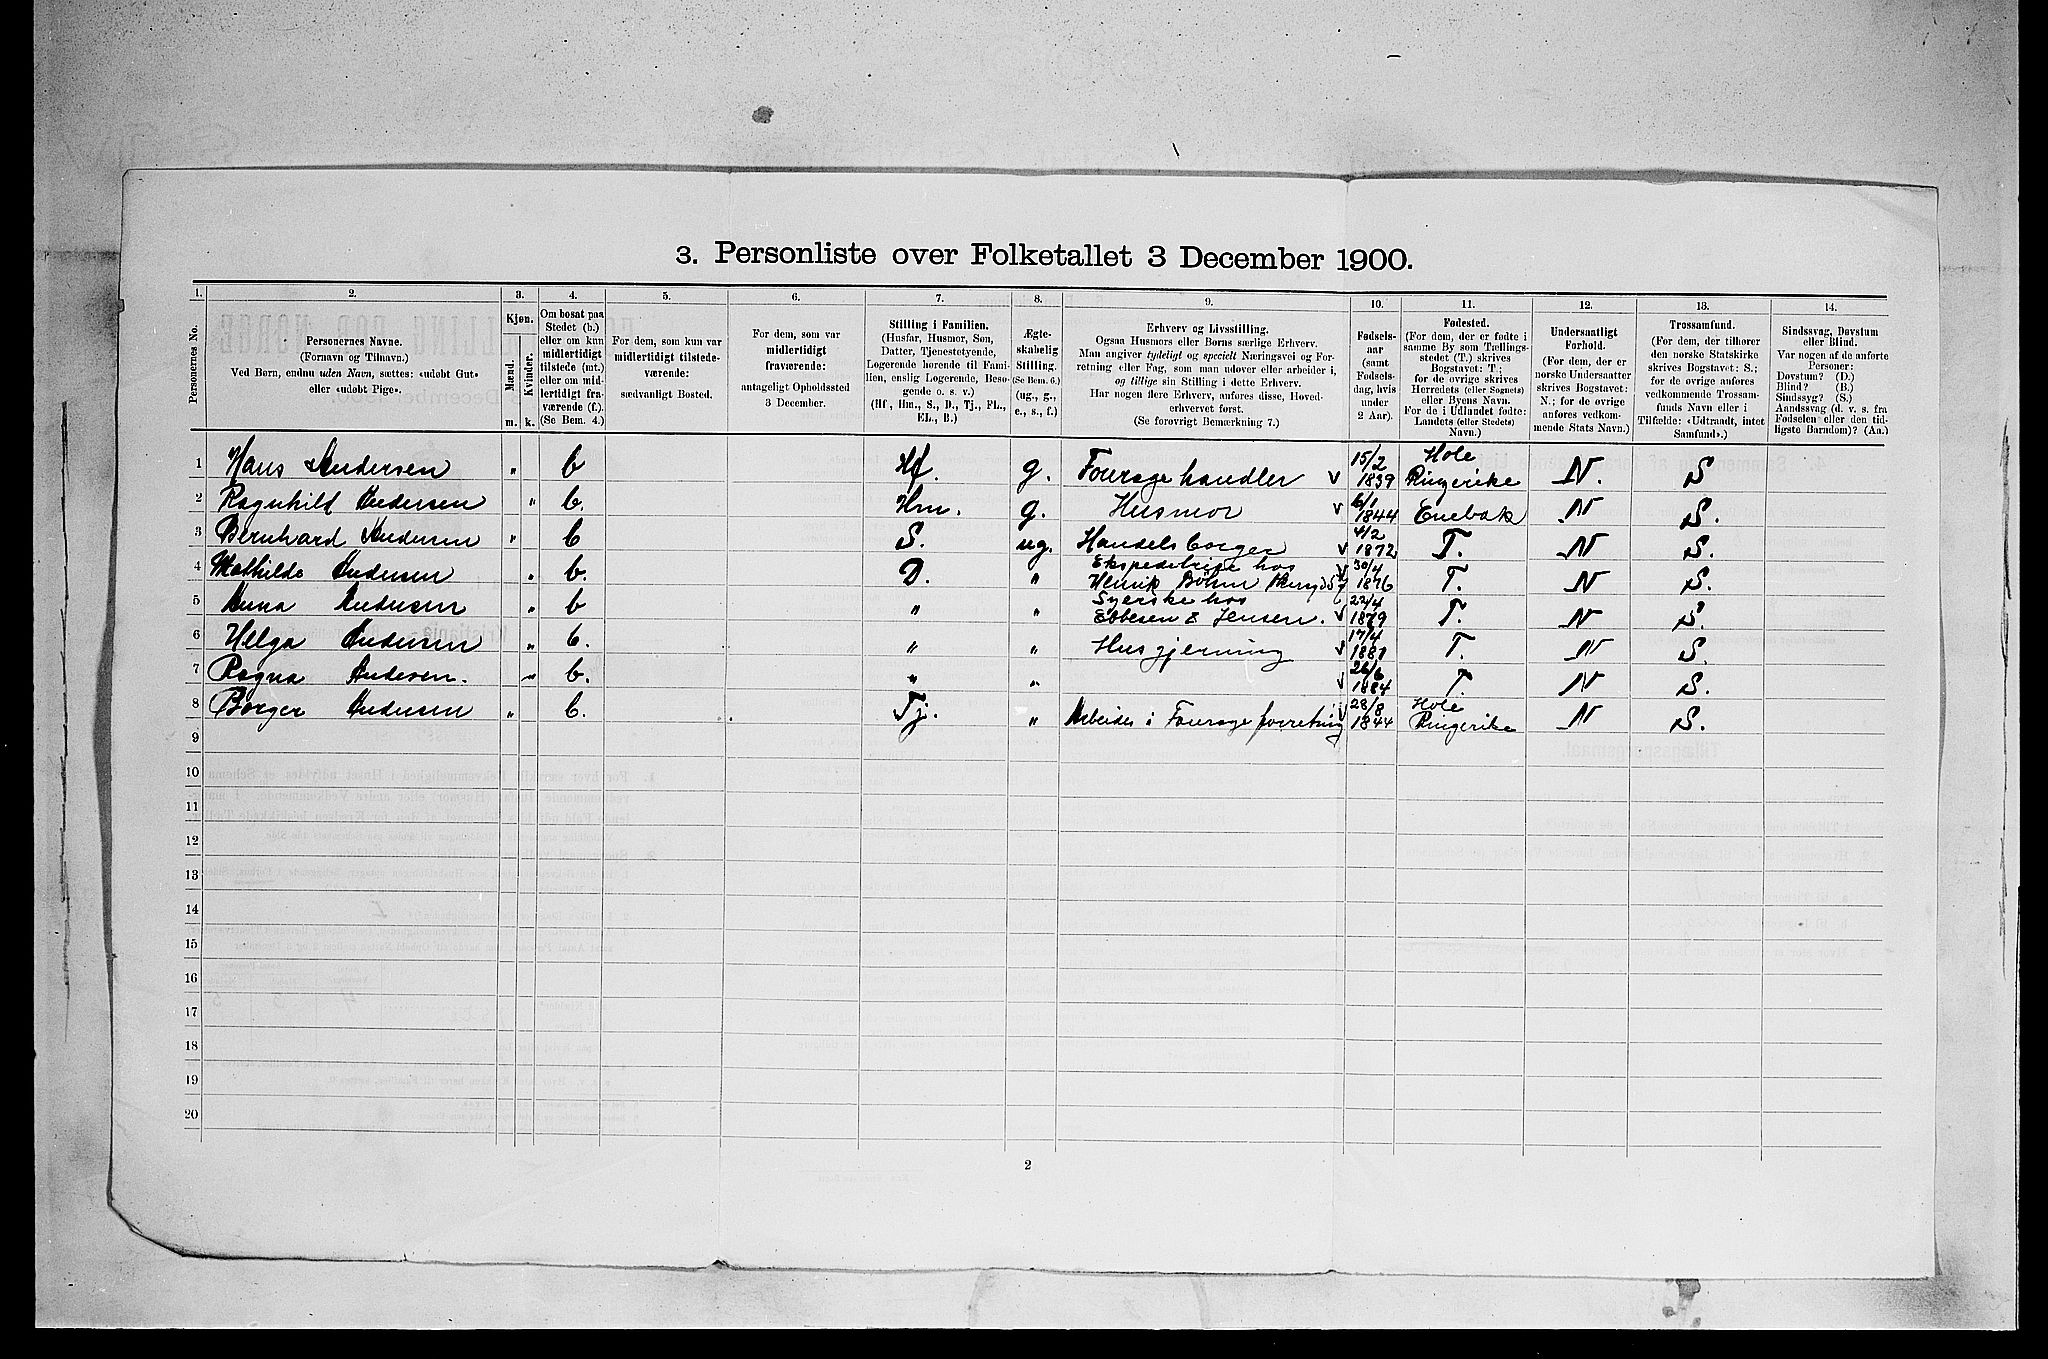 3. Personliste over Folketallet 3 December 1900.
1. 2. 3. 4. 5. 6. 7. 8. 9. 10. 11. 12. 13. 14.
Personernes No.
Personernes Navne.
(Fornavn og Tilnavn.)
Ved Børn, endnu uden Navn, sættes: «udøbt Gut»
eller «udøbt Pige».
Kjøn.
Mænd. Kvinder.
m. k.
Om bosat paa
Stedet (b.)
eller om kun
midlertidigt
tilstede (mt.)
eller om mid-
lertidigt fra-
værende (f.).
(Se Bem. 4.)
For dem, som kun var
midlertidigt tilstede-
værende:
sædvanligt Bosted.
For dem, som var
midlertidigt
fraværende:
antageligt Opholdssted
3 December.
Stilling i Familien.
(Husfar, Husmor, Søn,
Datter, Tjenestetyende,
Logerende hørende til Fami-
lien, enslig Logerende, Besø-
gende o. s. v.)
(Hf, Hm., S., D., Tj., FL.,
EL., B.)
Ægte-
skabelig
Stilling.
(Se Bem. 6.)
(ug., g.,
e., s., f.)
Erhverv og Livsstilling.
Ogsaa Husmors eller Børns særlige Erhverv.
Man angiver tydeligt og specielt Næringsvei og For-
retning eller Fag, som man udøver eller arbeider i,
og tillige sin Stilling i dette Erhverv.
Har nogen flere Erhverv, anføres disse, Hoved-
erhvervet først.
(Se forøvrigt Bemærkning 7.)
Fødsels-
aar
(samt
Fødsels-
dag, hvis
under
2 Aar).
Fødested.
(For dem, der er fødte i
samme By som Tællings-
stedet (T.) skrives
Bogstavet: T.;
for de øvrige skrives
Herredets (eller Sognets)
eller Byens Navn.
For de i Udlandet fødte:
Landets (eller Stedets)
Navn.)
Undersaatligt
Forhold.
(For dem, der er
norske Undersaatter
skrives Bogstavet:
N.; for de øvrige
anføres vedkom-
mende Stats Navn.)
Trossamfund.
(For dem, der tilhører
den norske Statskirke
skrives Bogstavet: S.;
for de øvrige anføres
vedkommende Trossam-
funds Navn eller i
Tilfælde: «Udtraadt, intet
Samfund».)
Sindssvag, Døvstum
eller Blind.
Var nogen af de anførte
Personer:
Døvstum? (D.)
Blind? (B.)
Sindssyg? (S.)
Aandssvag (d. v. s. fra
Fødselen eller den tid-
ligste Barndom)? (Aa.)
1 Hans Andersen " b Hf. g. Fouragehandler v 15/2 1839 Hole Ringerike N. S
2 Ragnhild Andersen " b. Hm. g. Husmor v 6/1 1844 Enebak N S.
3 Bernhard Andersen " b S. ug. Handelsborger v 4/2 1872 T. N S.
4 Mathilde Andersen " b. D. " Ekspeditrise hos Henrik Böhm 30/4 1876 T. N S.
5 Anna Andersen " b " " Syerske hos Ebbesen & Jensen. v 22/4 1879 T. N S.
6 Helga Andersen " b. " " Husgjerning v 17/4 1881 T. N S.
7 Ragna Andersen. " b. " " v 26/6 1884 T. N S.
8 Borger Andersen " b. Tj. " Arbeider i Fourage forretning v 28/8 1844 Hole Ringerike N S.
9
10
11
12
13
14
15
16
17
18
19
20
2